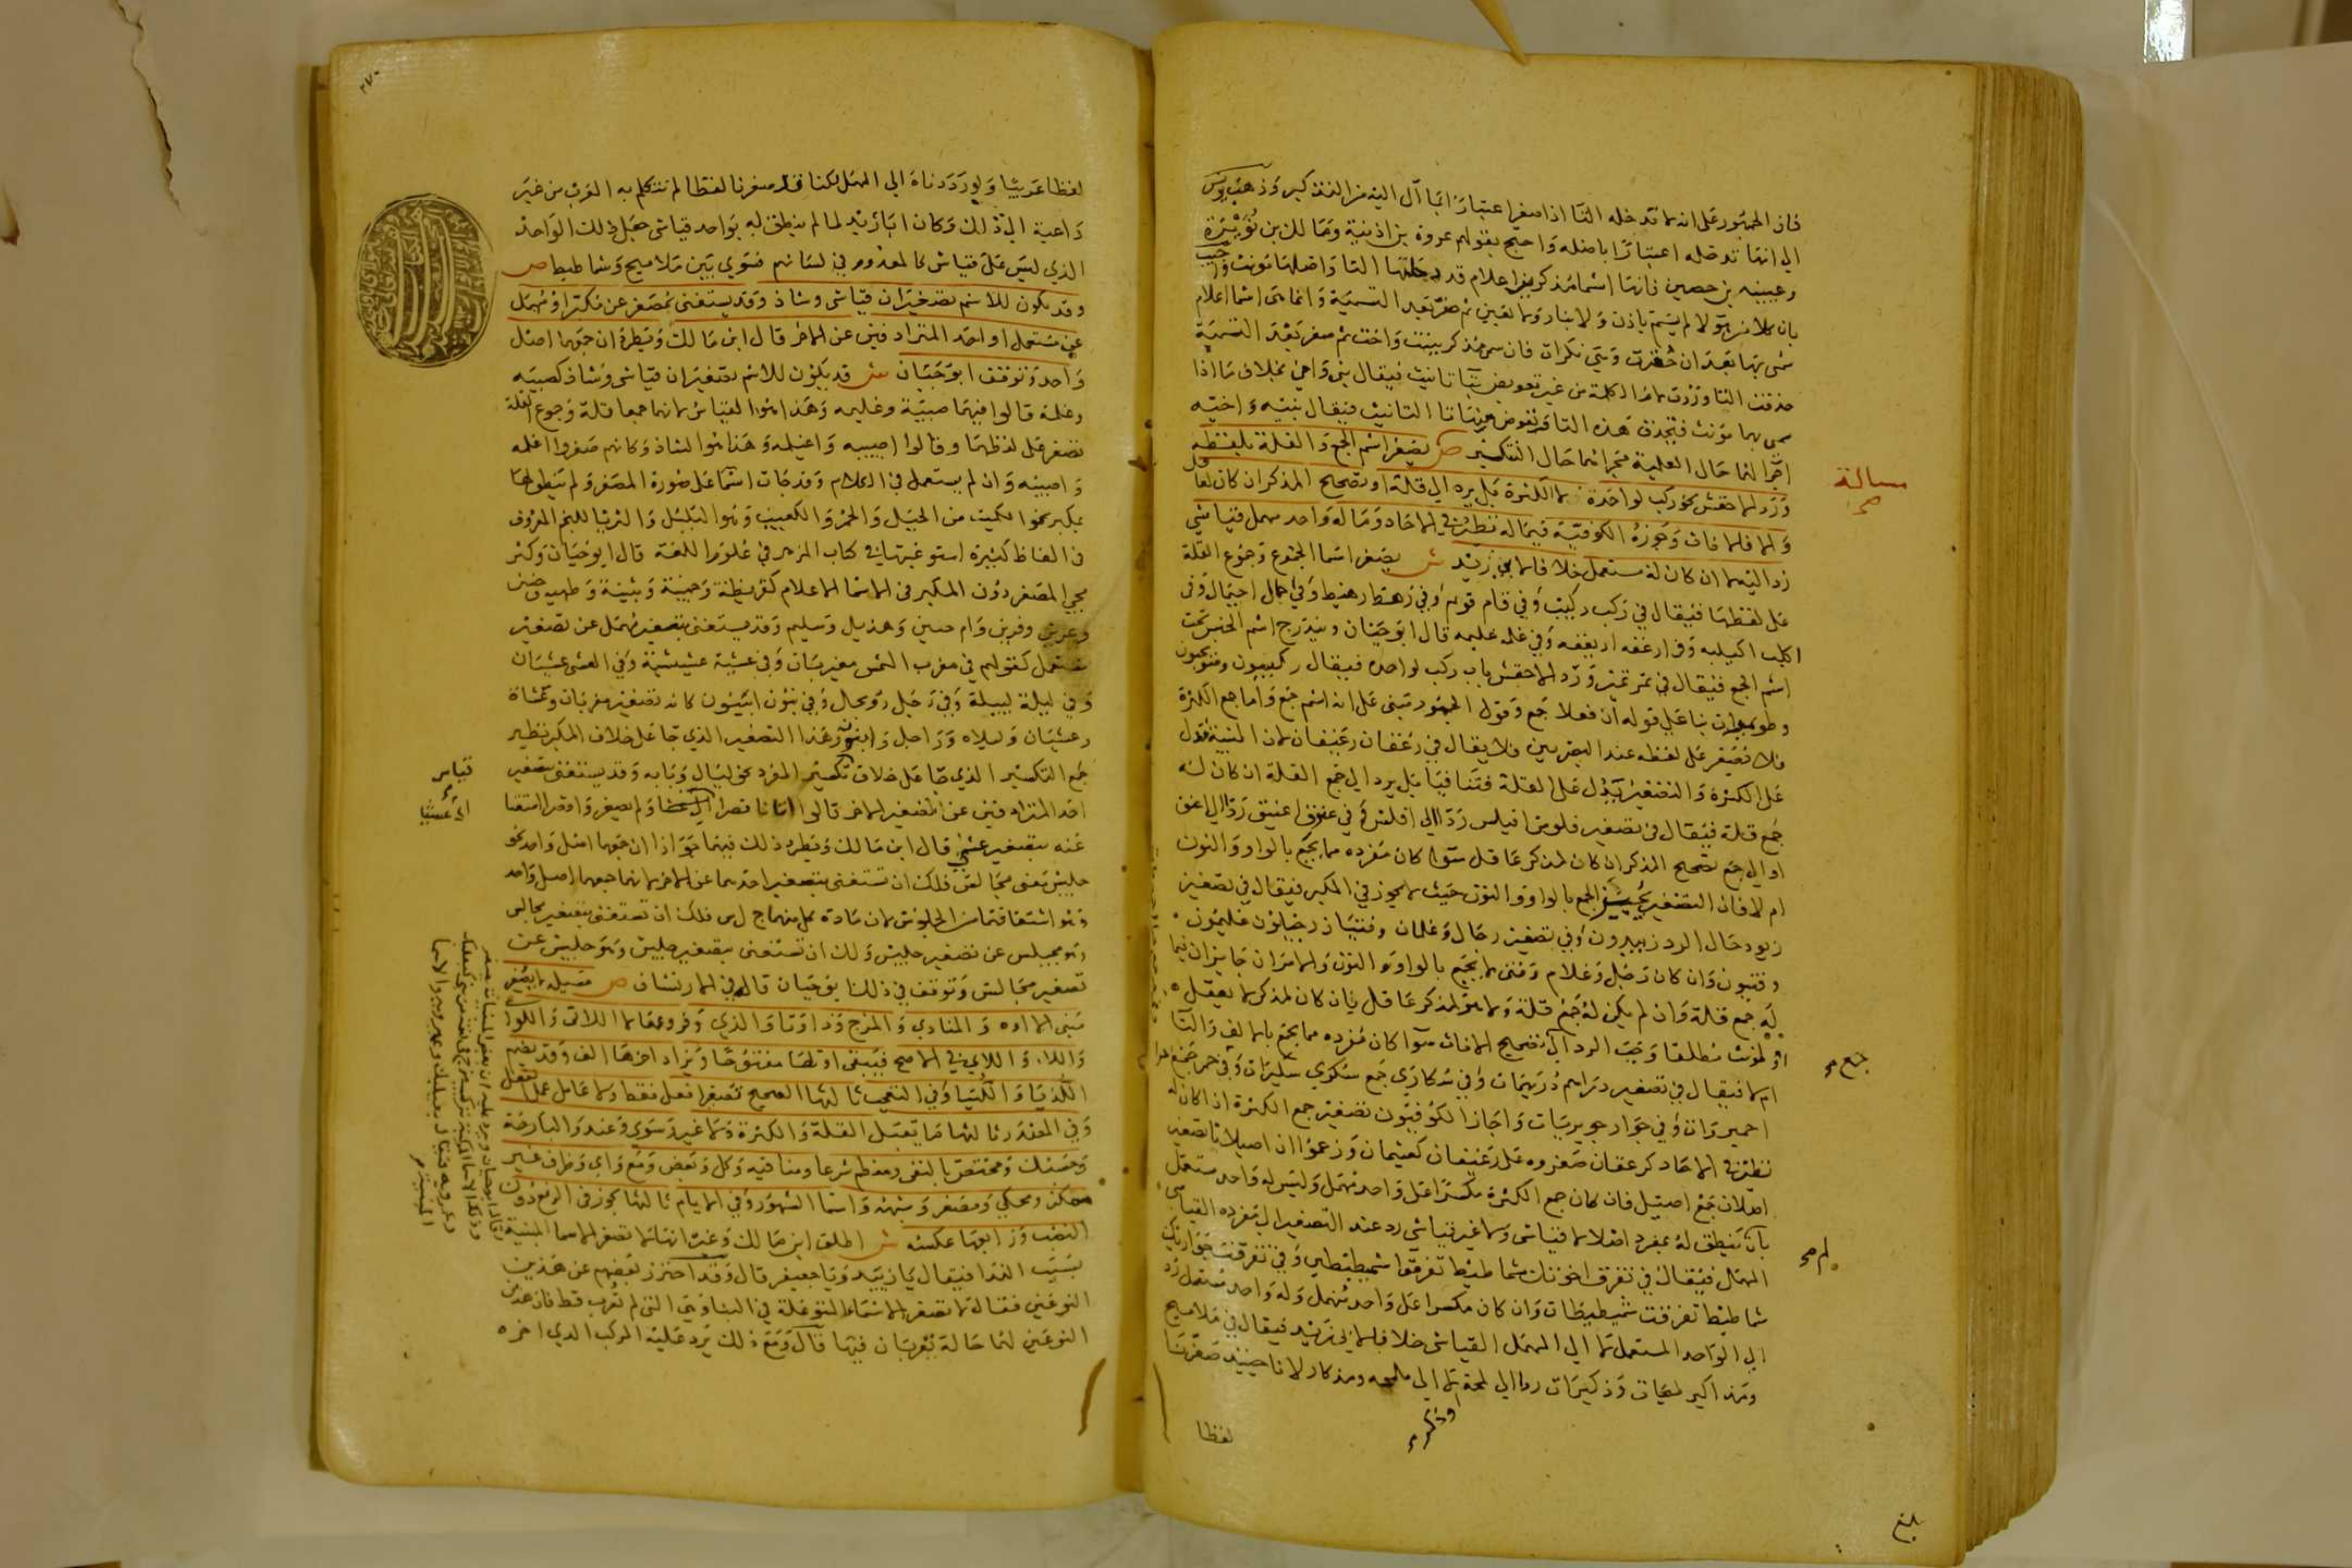 فان الجمهور على انه لا تدخله التا اذا صغر اعتبارا بما آل اليه من التذكير وذهب يونس
الي انها تدخله اعتبارا باصله واحتج بقولهم عروة بن اذينة ومالك بن نويرة
وعيينه بن حصين فانها اسما مذكرين اعلام قد دخلتها التا واصلها مونث واجيب
بان كلا من هولا لم يسم باذن ولا بنار ولا بعين ثم صغر بعد التسمية وانما هي اسما اعلام
سمي بها بعد ان صغرت وهي نكرات فان سمي مذكر ببنت واخت ثم صغر بعد التسمية
حذفت التا وردت لام الكلمة من غير تعويض تا تانيث فيقال بني واخي بخلاف ما اذا
سمي بهما مونث فتحذف هذه التا وتعوض منها تا التانيث فيقال بنيه واخيه
اجرا لها حال العلمية مجراها حال التنكير ص يصغر اسم الجمع والقلة بلفظه
ورد الاخفش نحو ركب لواحده لا الكثرة بل يرد الي قلة او تصحيح المذكر ان كان لعاقل
والا فالافات وجوزه الكوفية فيما له نظير في الاحاد وما له واحد مهمل قياسي
رد اليه لا ان كان له مستعمل خلافا لابي زيد ش يصغر اسما الجموع وجموع القلة
على لفظها فيقال في ركب ركيب وفي قوم قويم وفي رهط رهيط وفي اجمال اجيمال وفي
اكلب اكيلب وفي ارغفه اريغفه وفي غلمه غليمه قال ابو حيان ويندرج اسم الجنس تحت
اسم الجمع فيقال في تمر تمير ورد الاخفش باب ركب لواحده فيقال رويكبون
وطويرات بنا على قوله ان فعلا جمع وقول الجمهور مبني على انه اسم جمع واما جمع الكثرة
فلا يصغر على لفظه عند البصريين فلا يقال في رغفان رغيفان لان البنية تدل
على الكثرة والتصغير يدل على القلة فتنافيا بل يرد الي جمع القلة ان كان له
جمع قلة فيقال في تصغير فلوس افيلس ردا الي افلس وفي عنوق اعينق ردا الي اعنق
او الي جمع تصحيح المذكر ان كان لمذكر عاقل سوا كان مفرده مما يجمع بالواو والنون
ام لا فان التصغير يجيز الجمع بالواو والنون حيث لا يجوز في المكبر فيقال في تصغير
زيود حال الرد زييدون وفي تصغير رجال وغلمان وفتيان رجيلون غليمون
وفتيون وان كان رجل وغلام وفتى لا يجمع بالواو والنون والامران جايزان فيما
له جمع قلة وان لم يكن له جمع قلة ولا هو لمذكر عاقل بان كان لمذكر لا يعقل
او لمونث مطلقا وجب الرد الي تصحيح الاناث سوا كان مفرده مما يجمع بالالف والتا
ام لا فيقال في تصغير دراهم دريهمات وفي سكاري جمع سكري سكيرات وفي حمر جمع حمرا
احميرات وفي جوار جويريات واجاز الكوفيون تصغير جمع الكثرة اذا كان له
نظير في الاحاد كرغفان صغروه على رغيفان كعثيمان وزعموا ان اصيلانا تصغير
اصلان جمع اصيل فان كان جمع الكثرة مكسرا على واحد مهمل وليس له واحد مستعمل
بان ينطق له بمفرد اصلا لا قياسي ولا غير قياسي رد عند التصغير الي مفرده القياسي
المهمل فيقال في تفرق اخوتك شماطيط تفرقوا شميطيطين وفي تفرقت جواريك
شماطيط تفرقت شميطيطات وان كان مكسرا على واحد مهمل وله واحد مستعمل رد
الي الواحد المستعمل لا الي المهمل القياسي خلافا لابي زيد فيقال في ملاميح
ومذاكير لميحات وذكيرات ردا الي لمحة وذكر لا الي ملمحه ومذكار لانا حينئذ صغرنا
لفظا
مسالة
صح
جمع صح
لم صح
بلغ
٢٧٠
لفظا عربيا ولو رددناه الي المهمل لكنا قد صغرنا لفظا لم تتكلم به العرب من غير
داعية الي ذلك وكان ابا زيد لما لم ينطق له بواحد قياسي جعل ذلك الواحد
الذي ليس على قياس كالمعدوم في لسانهم فسوي بين ملاميح وشماطيط ص
وقد يكون للاسم تصغيران قياسي وشاذ وقد يستغنى بمصغر عن مكبر او مهمل
عن مستعمل او احد المترادفين عن الاخر قال ابن مالك ويطرد ان جمعهما اصل
واحد وتوقف ابو حيان ش قد يكون للاسم تصغيران قياسي وشاذ كصبيه
وغلمة قالوا فيهما صبية وغليمه وهذا هو القياس لانهما جمعا قلة وجموع القلة
تصغر على لفظها وقالوا اصيبيه واغيلمه وهذا هو الشاذ وكانهم صغروا اغلمه
واصبيه وان لم يستعمل في الكلام وقد جات اسما على صورة المصغر ولم ينطق لها
بمكبر نحو الكميت من الخيل والخمر والكعيت وهو البلبل والثريا للنجم المعروف
في الفاظ كثيرة استوعبتها في كتاب المزهر في علوم اللغة قال ابو حيان وكثر
مجي المصغر دون المكبر في الاسما الاعلام كقريظة وجهينة وبثينة وطهيه وحنين
وعرين وقرين وام حبين وهذيل وسليم وقد يستغنى بتصغير مهمل عن تصغير
مستعمل كقولهم في مغرب الشمس مغيربان وفي عشية عشيشية وفي العشى عشيان
وفي ليلة لييلة وفي رجل رويجل وفي بنون ابينون كانه تصغير مغربان وعشاة
وعشيان وليلاه وراجل وابنون وهذا التصغير الذي جا على خلاف المكبر نظير
جمع التكسير الذي جا على خلاف تكسير المفرد نحو ليال وبابه وقد يستغنى بتصغير
احد المترادفين عن تصغير الاخر قالوا اتانا قصرا اي عشا ولم يصغروا قصرا استغنا
عنه بتصغير عشي قال ابن مالك ويطرد ذلك فيهما جوازا ان جمعهما اصل واحد نحو
جليس بمعنى مجالس فلك ان تستغنى بتصغير احدهما عن الاخر لانهما جمعهما اصل واحد
وهو اشتقاقهما من الجلوس لان مادة كل منهما ج ل س فلك ان تستغنى بتصغير مجالس
وهو مجيلس عن تصغير جليس ولك ان تستغنى بتصغير جليس وهو جليس عن
تصغير مجالس وتوقف في ذلك ابو حيان قاله في الارتشاف ص مسيلة لا يصغر
مبني الا اوه والمنادي والمزج وذا وتا والذي وفروعها لا اللاتي واللوا
واللاء واللاي في الاصح فيبقى اولها مفتوحا ويزاد اخرها الف وقد يضم
اللذيا واللتيا وفي التعجب ثالثها الصحيح تصغير افعل فقط ولا عامل عمل الفعل
وفي المصدر ثالثها ما يقبل القلة والكثرة ولا غير وسوي وعند والبارحة
وحسبك ومختص بالنفي ومعظم شرعا ومنافيه وكل وبعض ومع واي وظرف غير
متمكن ومحكي ومصغر وشبهه واسما الشهور وفي الايام ثالثها يجوز في الرفع دون
النصب ورابعها عكسه ش اطلق ابن مالك وغيره انها لا تصغر الاسما المبنية
بسبب الندا فيقال يا زييد ويا جعيفر قال وقد احترز بعضهم عن هذين
النوعين فقال لا تصغر الاسماء المتوغلة في البناء وهي التي لم تعرب قط فان هذين
النوعين لهما حالة يعربان فيها قال ومع ذلك يرد عليه المركب الذي اخره
قياس
اي عشيا